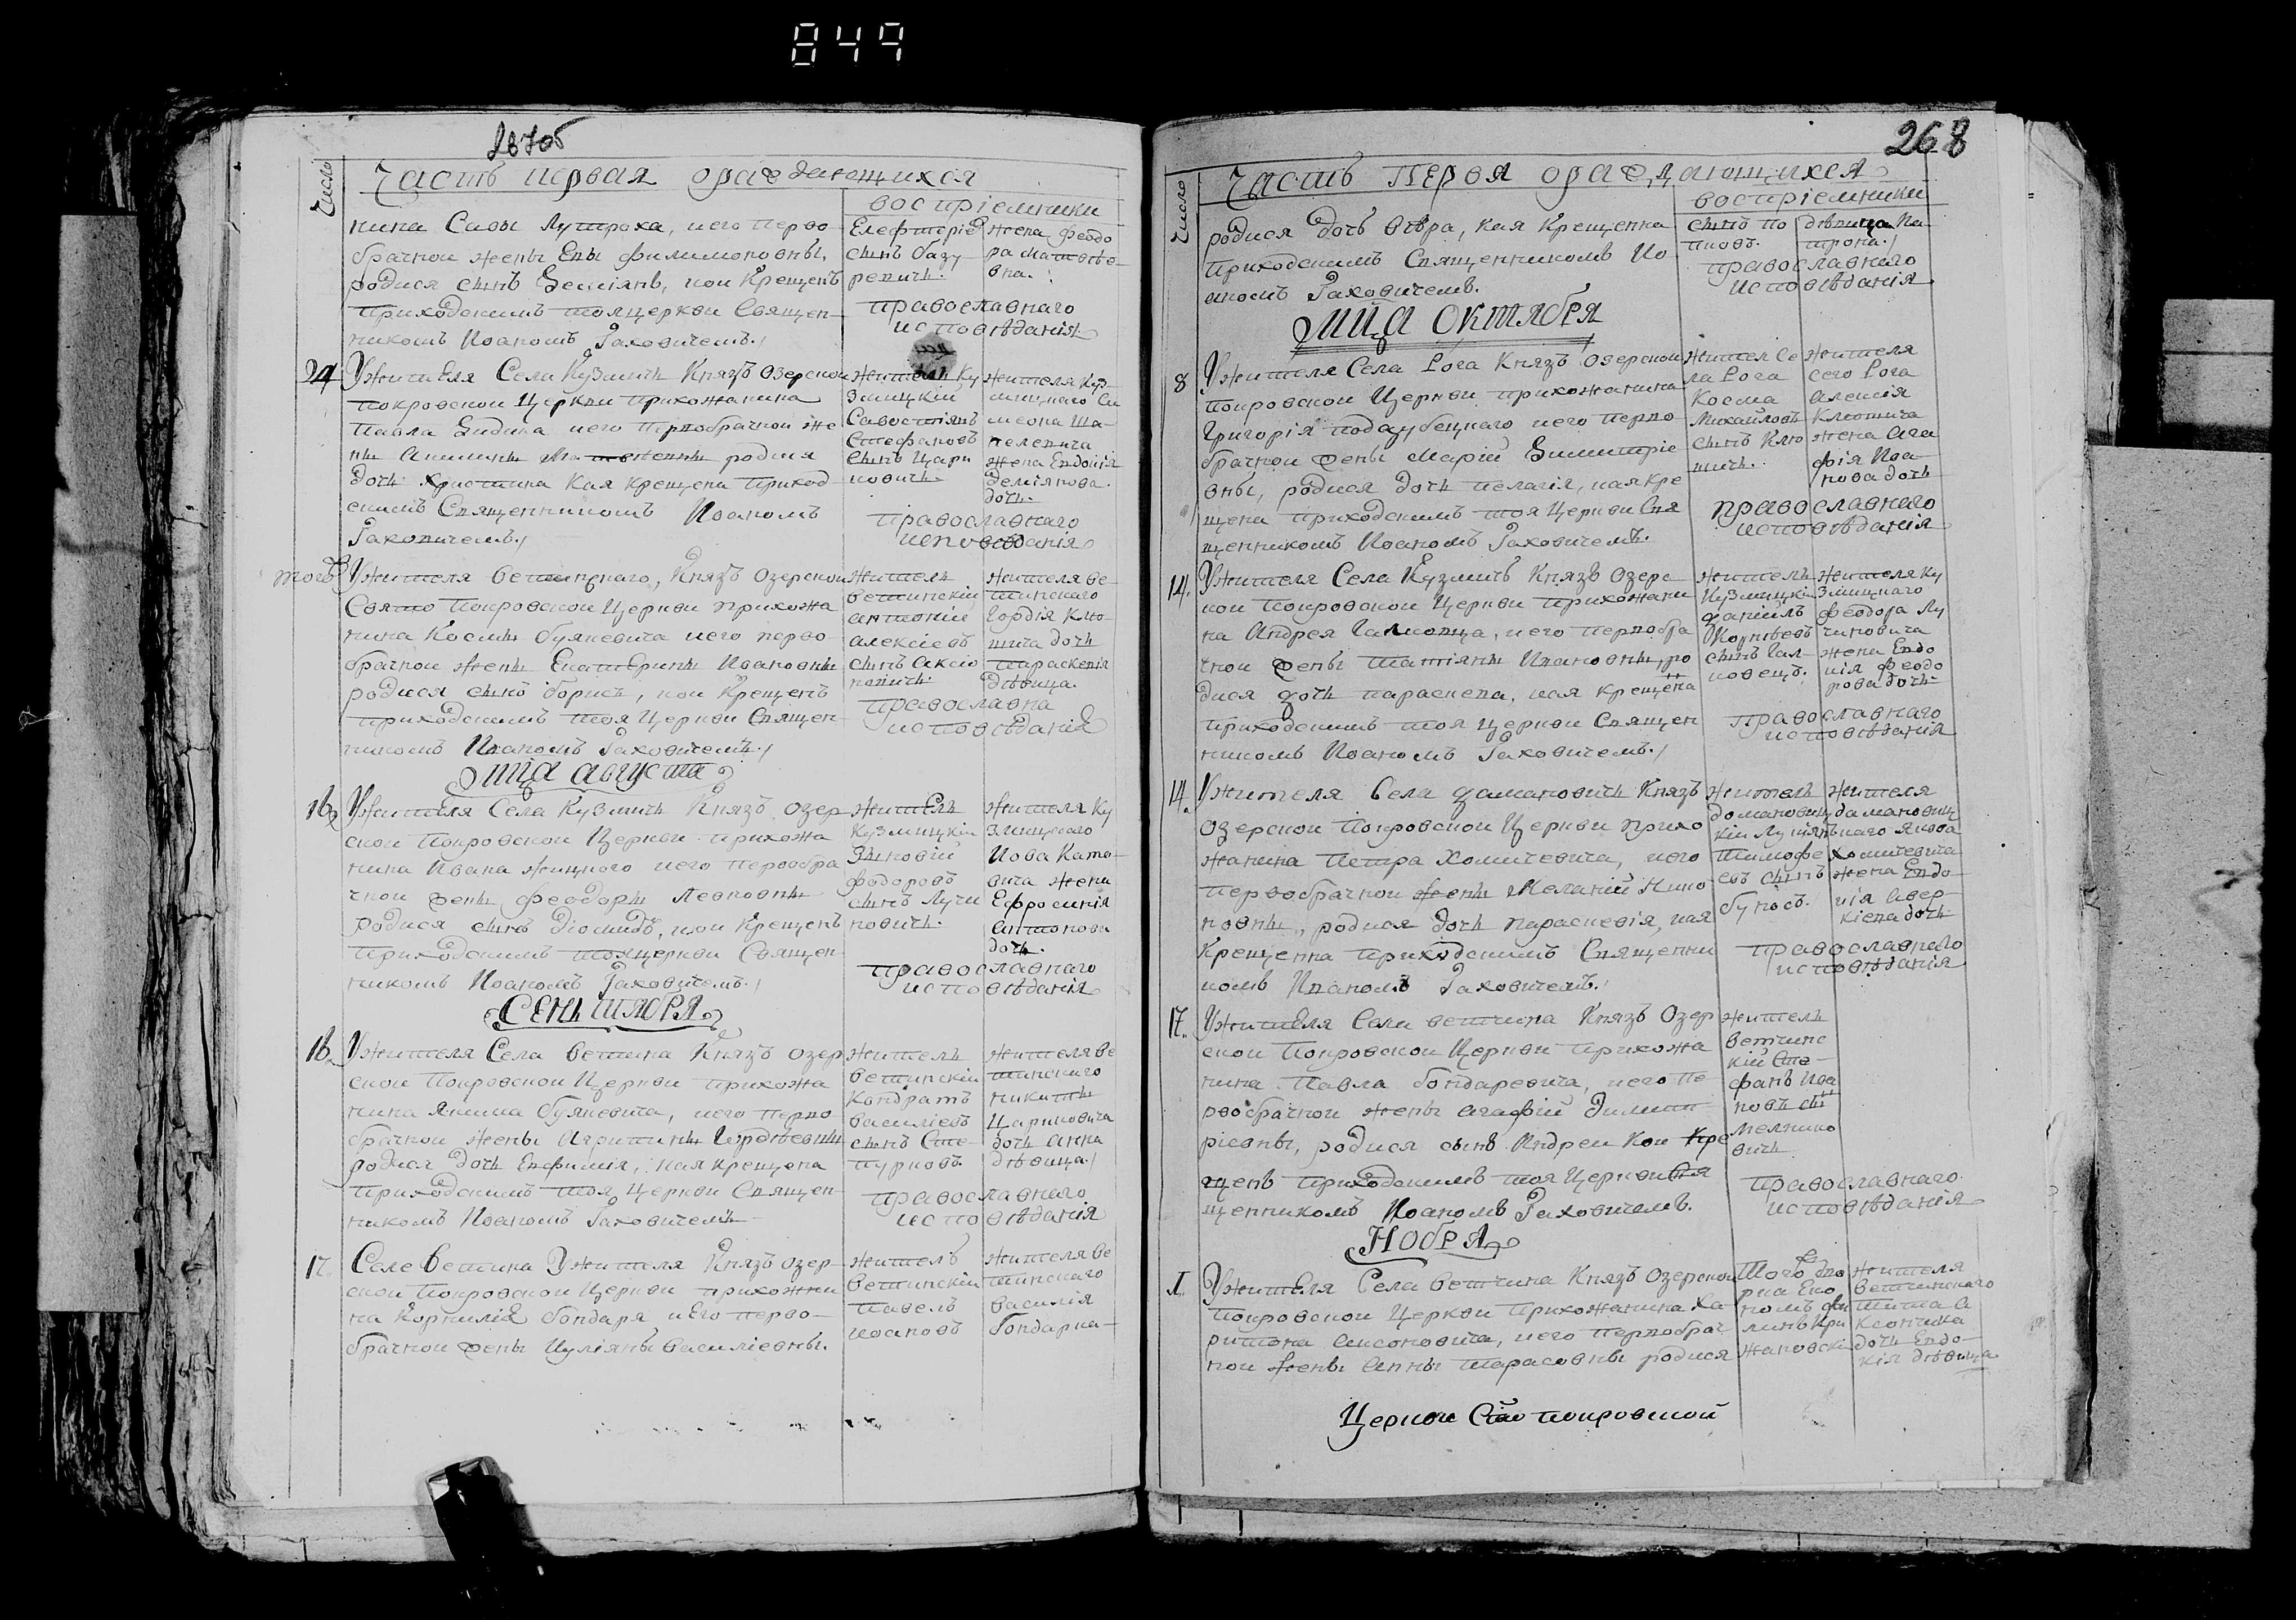 849
267об
Число
Часть первая ораждающихся
воспріемники
нина Савы Лутроха, иего перво
брачной жены Евы Филимоновны,
родися сынъ Деміянъ, кои Крещенъ
приходскимъ тояцеркви Священ-
никомъ Иоаномъ Раховичемъ.
Елефтеріе
сынъ базу
ревичь.
жена Феодо
ра Матвѣе
вна.
православнаго
исповѣданія
24
Ужителя Села Кузмичъ Князъ Озерской
покровской Церкви прихожанина
Павла Дидика иего Первобрачной же
ны Акилины родися
дочь христина Кая крещена приход
скимъ Священникомъ Иоаномъ
Раховичемъ.
житель Ку
змицкій
Савостіянъ
Стефановъ
сынъ Цари
ковичъ
жителя Куз
мицкаго Си
меона Ша-
пелевича
жена Евдокія
Деміянова
дочь.
православнаго
исповѣданія
тогожъ
Ужителя ветчинскаго, Князъ Озерской
Свято Покровской Церкви прихожа
нина Космы буякевича иего перво-
брачной жены Екатерины Ивановны
родися сынъ борисъ, кои Крещенъ
приходскимъ тоя Церкви Священ-
никомъ Иваномъ Раховичемъ.
житель
ветчинскій
антоній
алексіевъ
сынъ Аксіо
новичъ.
жителя ве-
тчинскаго
Гордія Клю-
чича дочь
Параскевія
дѣвица.
православна
исповѣданія
мца августа
16
Ужителя Села Кузмичъ Князъ Озер
ской Покровской Церкви прихожа
нина Ивана жицкого иего первобра
чной жены феодоры Левковны
родися сынъ Діомидъ, кои Крещенъ
приходскимъ тояцеркви Священ-
никомъ Иоаномъ Раховичемъ.
житель
Кузмицкій
Зыновій
Фодоровъ
сынъ Лучи
новичъ.
жителя Ку
змицкаго
Иова Като-
вича жена
Ефросинія
антонова
дочь.
православнаго
исповѣданія
СЕНЬТЯБРЯ
16
Ужителя Села ветчина Князъ озер
ской Покровской Церкви прихожа
нина Якима буякевича, иего перво-
брачной жены Агрипины Гордѣевны
родися дочь Евфимія, Кая крещена
приходскимъ тоя Церкви Священ-
никомъ Иоаномъ Раховичемъ
житель
ветчинскій
Кондратъ
василіевъ
сынъ Сте-
пурковъ.
жителя ве
тчинскаго
никиты
Цариковича
дочь анна
дѣвица.
православнаго
исповѣданія
17
Селе ветчина Ужителя Князъ озер-
ской Покровской Церкви прихожани
на Корнилія бондаря, иего перво-
брачной жены Иуліяны василіевны.
житель
ветчинскій
Павелъ
иоановъ
жителя ве
тчинскаго
василія
бондарка-
268
Число
Часть первая ораждающихся
воспріемники
родися дочь вѣра, кая Крещенна
приходскимъ Священникомъ Ио
аномъ Раховичемъ.
сынъ По
пковъ.
дѣвица Ма
трона.
православнаго
исповѣданія
МЦА ОКТЯБРЯ
8
Ужителя Села Рога Князъ озерской
покровской Церкви прихожанина
Григорія подазубецкаго иего перво
брачной жены Маріи Димитріе
вны, родися дочь пелагія, кая кре
щена приходскимъ тоя Церкви Свя
щенникомъ Иоаномъ Раховичемъ.
жител Се
ла Рога
Косма
Михайловъ
сынъ Клю
чичъ.
жителя
сего Рога
алексія
Ключича
жена ага
фія Ива
нова дочь
православнаго
исповѣданія
14.
Ужителя Села Кузмичъ Князъ Озерс
кой покровской Церкви прихожани
на Андрея Галковца, иего первобра
чной жены татіяны Ивановны, ро
дися дочь параскева, кая крещена
приходскимъ тоя Церкви Священ
никомъ Иоаномъ Раховичемъ.
житель
Кузмицкій
даніилъ
Корнѣевъ
сынъ Гал-
ковецъ.
жителя Ку
змицкаго
феодора Лу
чиновича
жена Евдо
кія феодо
рова дочь
православнаго
исповѣданія
14.
Ужителя Села дамановичъ Князъ
Озерской покровской Церкви прихо
жанина Петра Хомичевича, иего
первобрачной жены Меланіи Нико
новны, родися дочь параскевія, кая
Крещенна приходскимъ Священни
комъ Иваномъ Раховичемъ.
житель
домановиц
кій Лукіянъ
Тимофе
евъ сынъ
буносъ.
жителя
дамановиц
каго Якова
хомичевича
жена Евдо-
кія авер-
кіева дочь
православнаго
исповѣданія
17.
Ужителя Села ветчина Князъ Озер
ской Покровской Церкви прихожа
нина Павла бондаревича, иего пе
рвобрачной жены агафіи Димит
ріевны, родися сынъ Андреи Кои Кре
щенъ приходскимъ тоя Церкви Свя
щенникомъ Иоаномъ Раховичемъ.
житель
ветчинс
кій Сте-
фанъ Ива
новъ сы
мелнико
вичъ
православнаго
исповѣданія
НОБРЯ
1.
Ужителя Села ветчина Князъ озерской
покровской Церкви Прихожанина Ха
ритона аксоновича, иего первобрач
ной жены анны тарасовны родися
Того дво
рна Эко
номъ фи
липъ Кри
жановскій
жителя
ветчинскаго
Тита а
ксончика
дочь Евдо-
кія дѣвица
Церкви Сто покровской